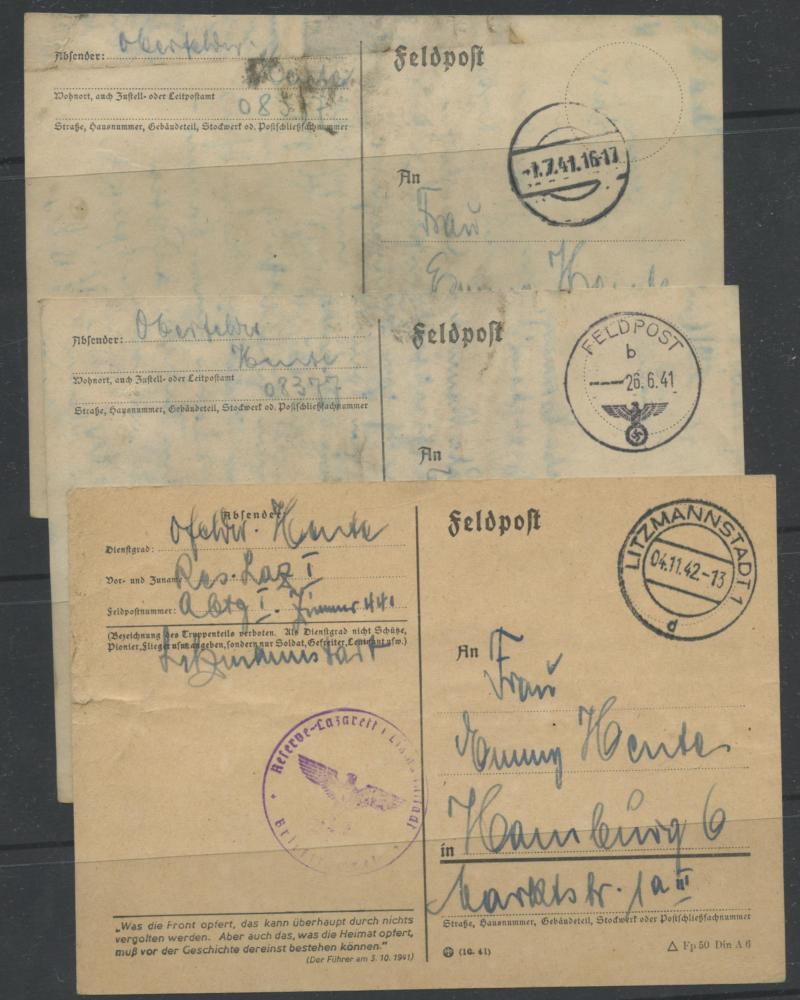 Absender: Oberfelder.
Hente
Wohnort, auch Zustell- oder Leitpostamt
08377
Straße, Hausnummer, Gebäudeteil, Stockwerk od. Postschließfachnummer
Feldpost
-1.7.41.16-17
An
Frau
Absender: Oberfelder
Hente
Wohnort, auch Zustell- oder Leitpostamt
08377
Straße, Hausnummer, Gebäudeteil, Stockwerk od. Postschließfachnummer
Feldpost
FELDPOST
b
26.6.41
An
Absender:
Ofelder. Hente
Dienstgrad:
Vor- und Zuname
Res. Laz I
Feldpostnummer:
Abtg I. Zimmer 441
(Bezeichnung des Truppenteils verboten. Als Dienstgrad nicht Schütze,
Pionier, Flieger usw. angeben, sondern nur Soldat, Gefreiter, Leutnant usw.)
Litzmannstadt
Reserve-Lazarett I
Feldpost
LITZMANNSTADT 1
04.11.42.-13
d
An
Frau
Emmy Hente
in Hamburg 6
Marktstr. 1a III
Straße, Hausnummer, Gebäudeteil, Stockwerk oder Postschließfachnummer
„Was die Front opfert, das kann überhaupt durch nichts
vergolten werden. Aber auch das, was die Heimat opfert,
muß vor der Geschichte dereinst bestehen können."
(Der Führer am 3. 10. 1941)
(10. 41)
△ Fp 50 Din A 6